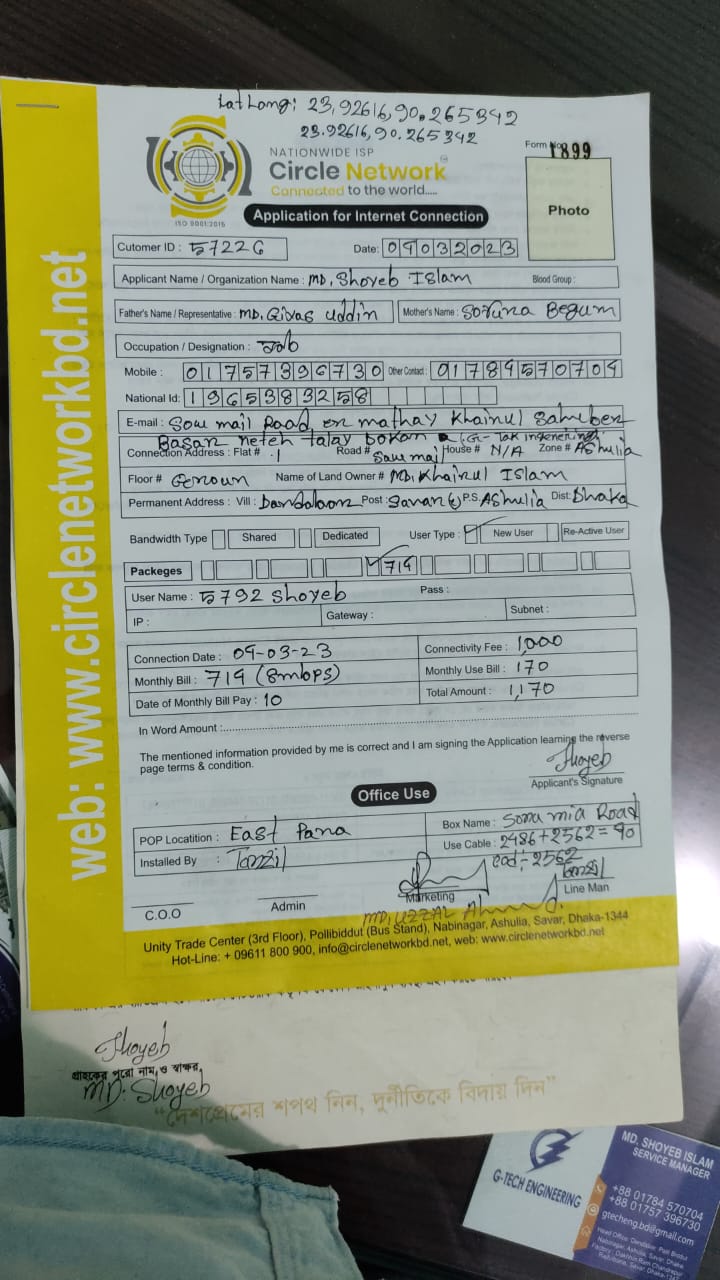 Lat Long: 23.92616, 90.265342
23.92616, 90.265342
NATIONWIDE ISP
Circle Network
Connected to the world.....
ISO 9001:2015
Form No
1899
Application for Internet Connection
Photo
Cutomer ID : 57226
Date: 09032023
Applicant Name / Organization Name : MD. Shoyeb Islam
Blood Group :
Father's Name / Representative : MD. Giyas Uddin
Mother's Name : Begum
Occupation / Designation :
Mobile : 01757396730 Other Contact : 01784570704
National Id: 1965383258
E-mail : Road er mathay Khairul
Connection Address : Flat # Road # House # N/A Zone # Ashulia
Floor # Name of Land Owner # MD. Khairul Islam
Permanent Address : Vill : Post : Savar P.S. Ashulia Dist: Dhaka
Bandwidth Type Shared Dedicated User Type : New User Re-Active User
Packeges 714
User Name : 5792 Shoyeb Pass :
IP : Gateway : Subnet :
Connection Date : 09-03-23 Connectivity Fee : 1,000
Monthly Bill : 714 (8mbps) Monthly Use Bill : 170
Date of Monthly Bill Pay : 10 Total Amount : 1,170
In Word Amount :
The mentioned information provided by me is correct and I am signing the Application learning the reverse
page terms & condition.
Shoyeb
Applicant's Signature
Office Use
POP Locatition : East Para
Box Name : Sona mia Road
Installed By : Tanzil
Use Cable : 2486+2562=90
cod:-2562
Tanzil
C.O.O Admin Marketing Line Man
MD. UZZAL Ahmed.
Unity Trade Center (3rd Floor), Pollibiddut (Bus Stand), Nabinagar, Ashulia, Savar, Dhaka-1344
Hot-Line: + 09611 800 900, info@circlenetworkbd.net, web: www.circlenetworkbd.net
web: www.circlenetworkbd.net
Shoyeb
গ্রাহকের পুরো নাম ও স্বাক্ষর
MD: Shoyeb
"দেশপ্রেমের শপথ নিন, দুর্নীতিকে বিদায় দিন"
G-TECH ENGINEERING
MD. SHOYEB ISLAM
SERVICE MANAGER
+88 01784 570704
+88 01757 396730
gtecheng.bd@gmail.com